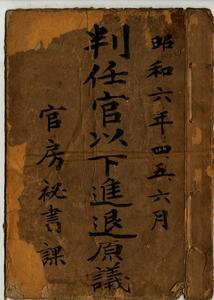 昭和六年四五六月
判任官以下進退原議
官房祕書課